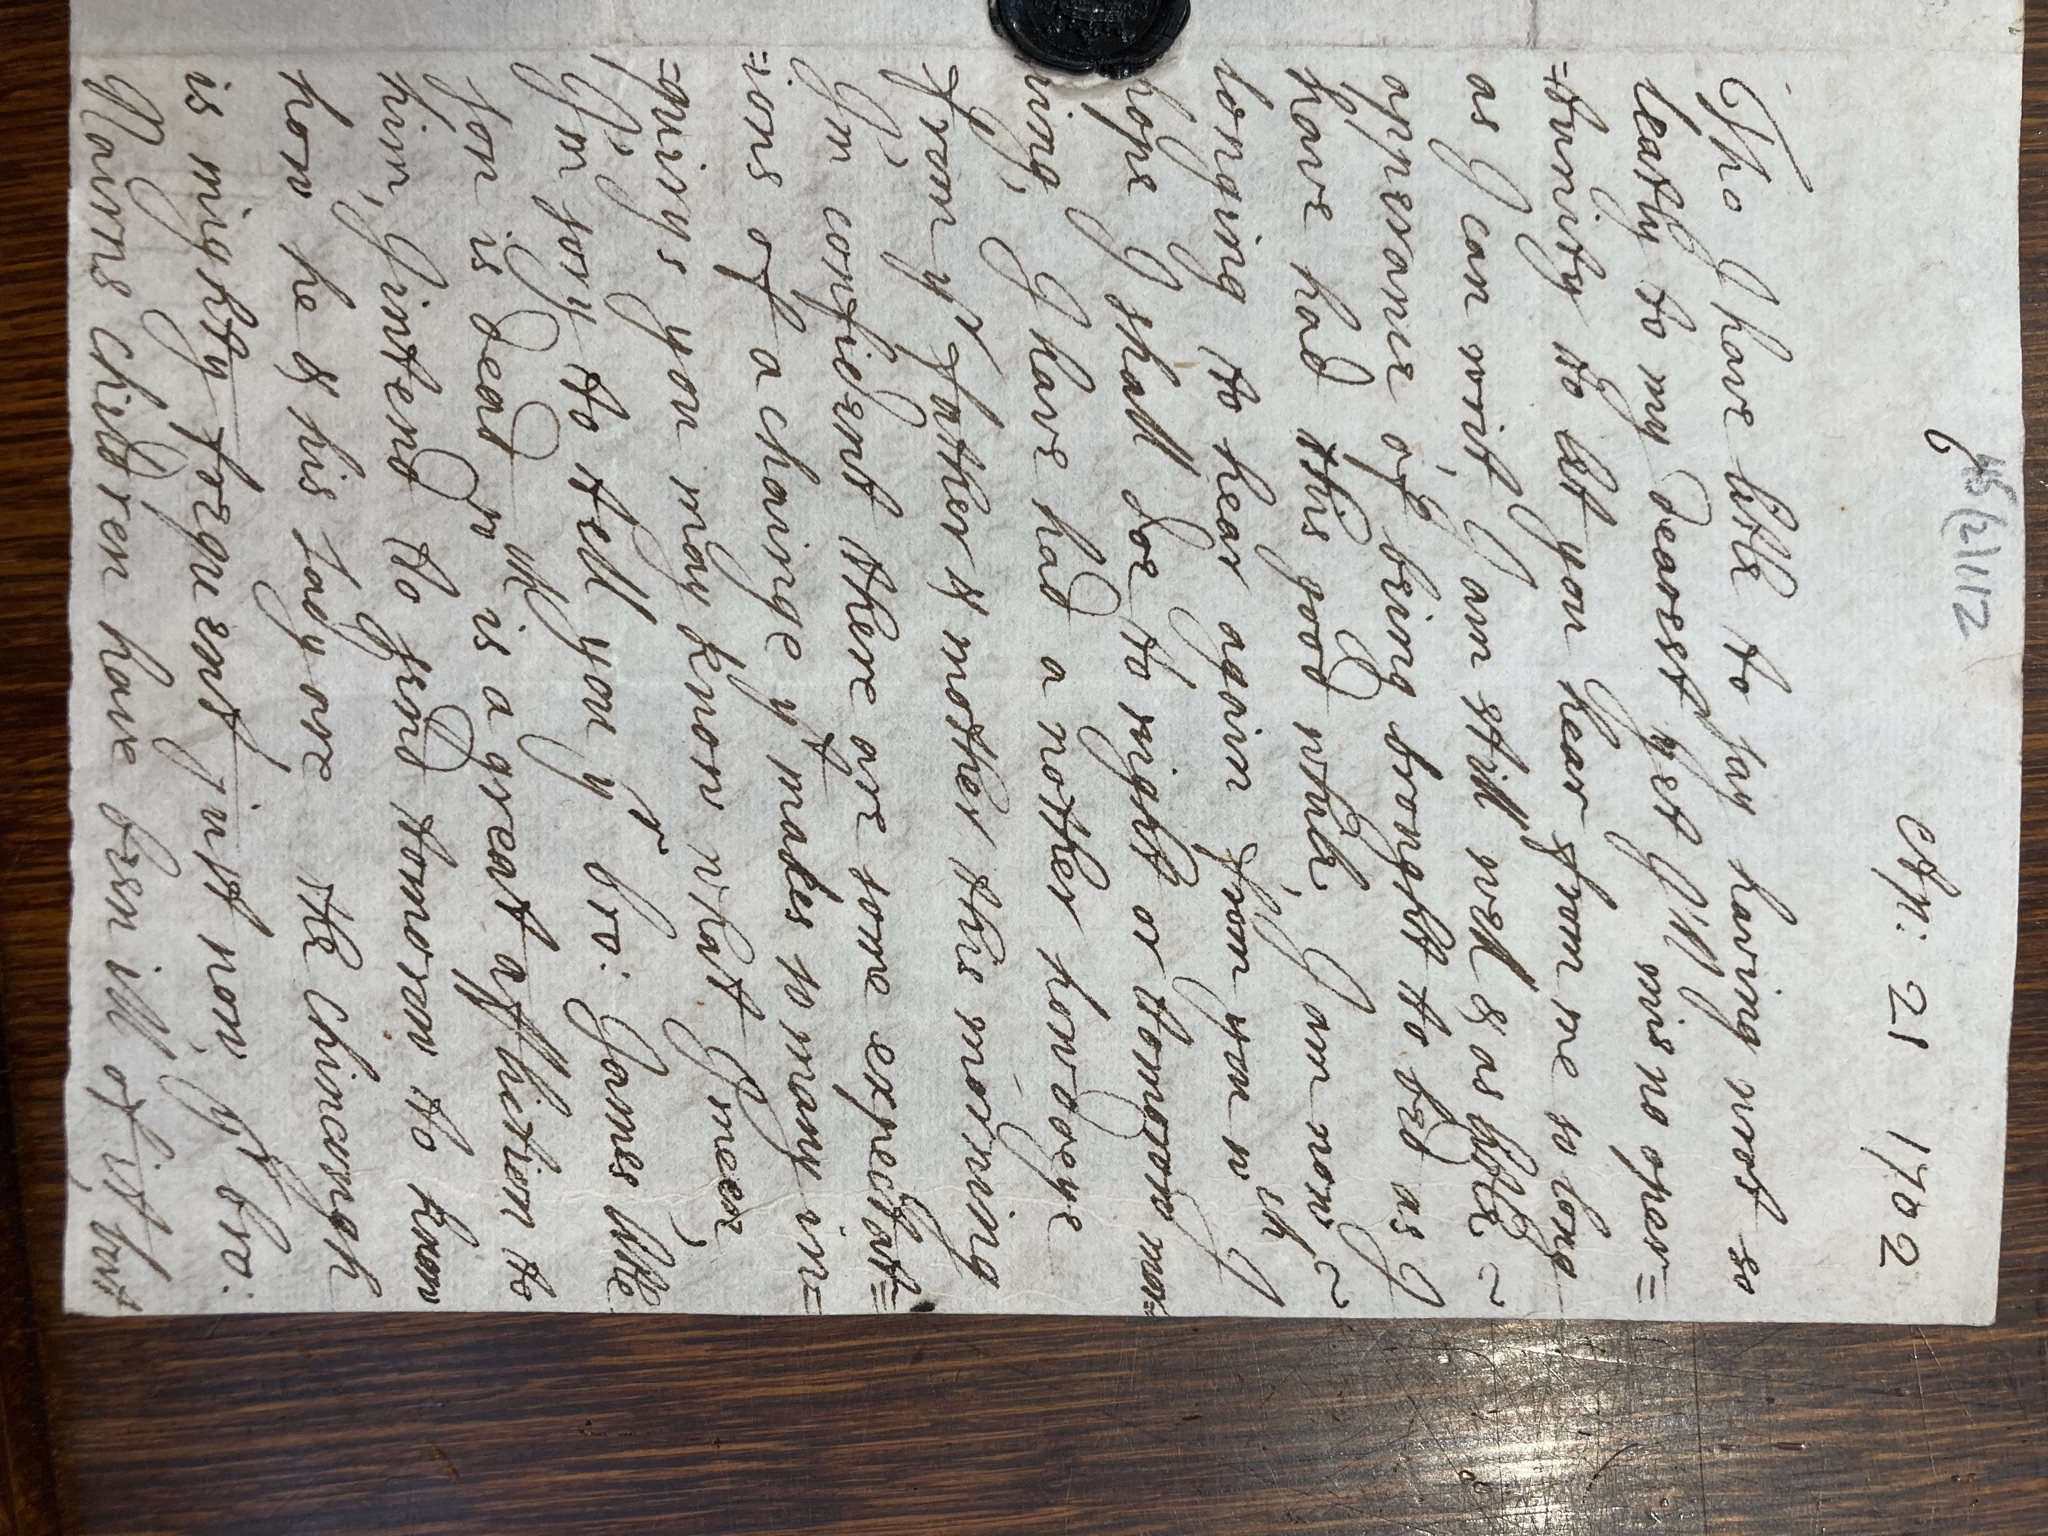 45(2)112
6
Ap: 21 1702
Tho I have litle to say having wrot so
leatly to my dearest yet I'll mis no oper=
=tunity to let you hear from me so long
as I can writ, I am still well & as litle ~
apperance of being brought to bed as I
have had this good while, I am now ~
longing to hear again from you wch I
hope I shall doe to night or tomorow mor=
ning, I have had a nother howdoeye
from yr father & mother this morning
I'm confident there are some expectat=
=ions of a chainge yt makes so many in=
=quirys you may know what I meen,
I'm sory to tell you yr bro: James litle
son is dead wch is a great affliction to
him, I intend to send tomorow to know
how he & his Lady are, the Chincough
is mighty frequent just now, yr bro:
Nairns children have been ill of it, but